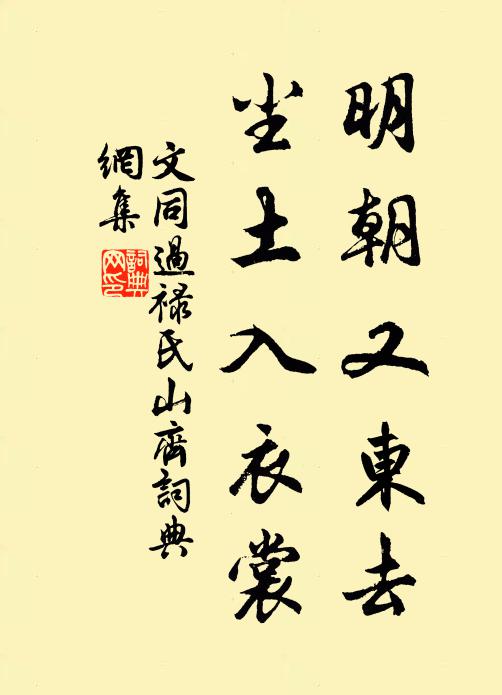 明朝又東去
尘土入衣裳
文同過禄氏山齋詞典
網集
詞典
网印